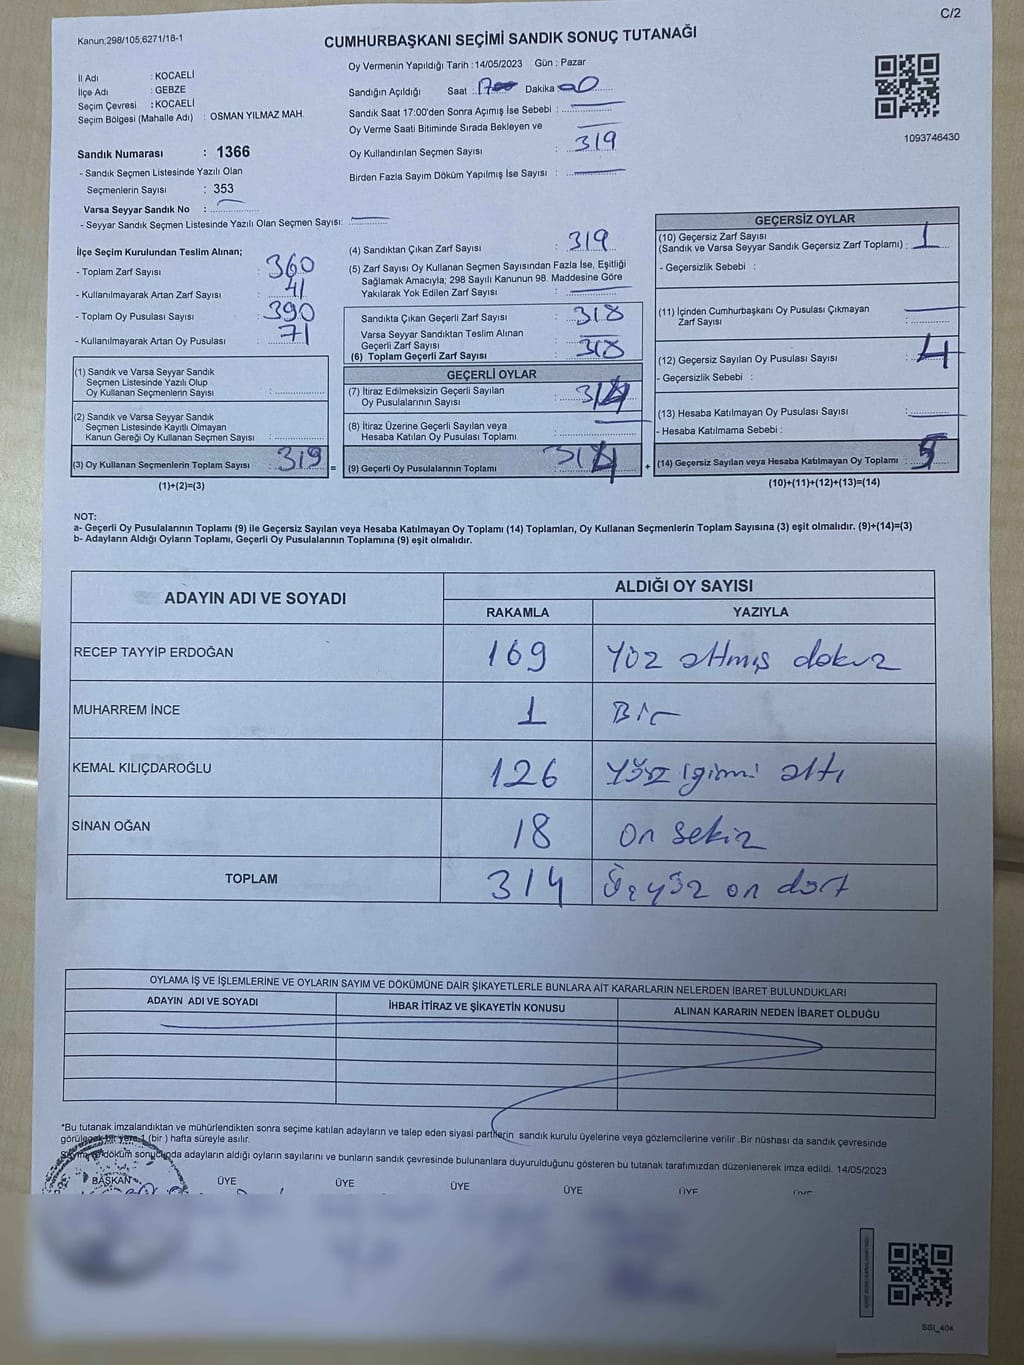 C/2
Kanun;298/105;6271/18-1
CUMHURBAŞKANI SEÇİMİ SANDIK SONUÇ TUTANAĞI
İl Adı : KOCAELİ
İlçe Adı : GEBZE
Seçim Çevresi : KOCAELİ
Seçim Bölgesi (Mahalle Adı) : OSMAN YILMAZ MAH.
Sandık Numarası : 1366
- Sandık Seçmen Listesinde Yazılı Olan
Seçmenlerin Sayısı : 353
Varsa Seyyar Sandık No :
- Seyyar Sandık Seçmen Listesinde Yazılı Olan Seçmen Sayısı:
Oy Vermenin Yapıldığı Tarih : 14/05/2023 Gün : Pazar
Sandığın Açıldığı Saat : 17 Dakika : 00
Sandık Saat 17:00'den Sonra Açımış İse Sebebi :
Oy Verme Saati Bitiminde Sırada Bekleyen ve
Oy Kullandırılan Seçmen Sayısı : 319
Birden Fazla Sayım Döküm Yapılmış İse Sayısı :
1093746430
İlçe Seçim Kurulundan Teslim Alınan;
- Toplam Zarf Sayısı : 360
- Kullanılmayarak Artan Zarf Sayısı : 41
- Toplam Oy Pusulası Sayısı : 390
- Kullanılmayarak Artan Oy Pusulası : 71
(1) Sandık ve Varsa Seyyar Sandık
Seçmen Listesinde Yazılı Olup
Oy Kullanan Seçmenlerin Sayısı :
(2) Sandık ve Varsa Seyyar Sandık
Seçmen Listesinde Kayıtlı Olmayan
Kanun Gereği Oy Kullanan Seçmen Sayısı :
(3) Oy Kullanan Seçmenlerin Toplam Sayısı : 319 =
(1)+(2)=(3)
(4) Sandıktan Çıkan Zarf Sayısı : 319
(5) Zarf Sayısı Oy Kullanan Seçmen Sayısından Fazla İse, Eşitliği
Sağlamak Amacıyla; 298 Sayılı Kanunun 98. Maddesine Göre
Yakılarak Yok Edilen Zarf Sayısı :
Sandıkta Çıkan Geçerli Zarf Sayısı : 318
Varsa Seyyar Sandıktan Teslim Alınan
Geçerli Zarf Sayısı :
(6) Toplam Geçerli Zarf Sayısı : 318
GEÇERLİ OYLAR
(7) İtiraz Edilmeksizin Geçerli Sayılan
Oy Pusulalarının Sayısı : 314
(8) İtiraz Üzerine Geçerli Sayılan veya
Hesaba Katılan Oy Pusulası Toplamı :
(9) Geçerli Oy Pusulalarının Toplamı : 314 +
GEÇERSİZ OYLAR
(10) Geçersiz Zarf Sayısı
(Sandık ve Varsa Seyyar Sandık Geçersiz Zarf Toplamı) : 1
- Geçersizlik Sebebi :
(11) İçinden Cumhurbaşkanı Oy Pusulası Çıkmayan
Zarf Sayısı :
(12) Geçersiz Sayılan Oy Pusulası Sayısı : 4
- Geçersizlik Sebebi :
(13) Hesaba Katılmayan Oy Pusulası Sayısı :
- Hesaba Katılmama Sebebi :
(14) Geçersiz Sayılan veya Hesaba Katılmayan Oy Toplamı : 5
(10)+(11)+(12)+(13)=(14)
NOT:
a- Geçerli Oy Pusulalarının Toplamı (9) ile Geçersiz Sayılan veya Hesaba Katılmayan Oy Toplamı (14) Toplamları, Oy Kullanan Seçmenlerin Toplam Sayısına (3) eşit olmalıdır. (9)+(14)=(3)
b- Adayların Aldığı Oyların Toplamı, Geçerli Oy Pusulalarının Toplamına (9) eşit olmalıdır.
ADAYIN ADI VE SOYADI ALDIĞI OY SAYISI
RAKAMLA YAZIYLA
RECEP TAYYİP ERDOĞAN 169 Yüz altmış dokuz
MUHARREM İNCE 1 Bir
KEMAL KILIÇDAROĞLU 126 Yüz igirmi altı
SİNAN OĞAN 18 on sekiz
TOPLAM 314 Üç yüz on dört
OYLAMA İŞ VE İŞLEMLERİNE VE OYLARIN SAYIM VE DÖKÜMÜNE DAİR ŞİKAYETLERLE BUNLARA AİT KARARLARIN NELERDEN İBARET BULUNDUKLARI
ADAYIN ADI VE SOYADI İHBAR İTİRAZ VE ŞİKAYETİN KONUSU ALINAN KARARIN NEDEN İBARET OLDUĞU
*Bu tutanak imzalandıktan ve mühürlendikten sonra seçime katılan adayların ve talep eden siyasi partilerin sandık kurulu üyelerine veya gözlemcilerine verilir .Bir nüshası da sandık çevresinde
görülecek bir yere 1 (bir ) hafta süreyle asılır.
Sayım ve döküm sonucunda adayların aldığı oyların sayılarını ve bunların sandık çevresinde bulunanlara duyurulduğunu gösteren bu tutanak tarafımızdan düzenlenerek imza edildi. 14/05/2023
BAŞKAN ÜYE ÜYE ÜYE ÜYE ÜYE ÜYE
SSI_404